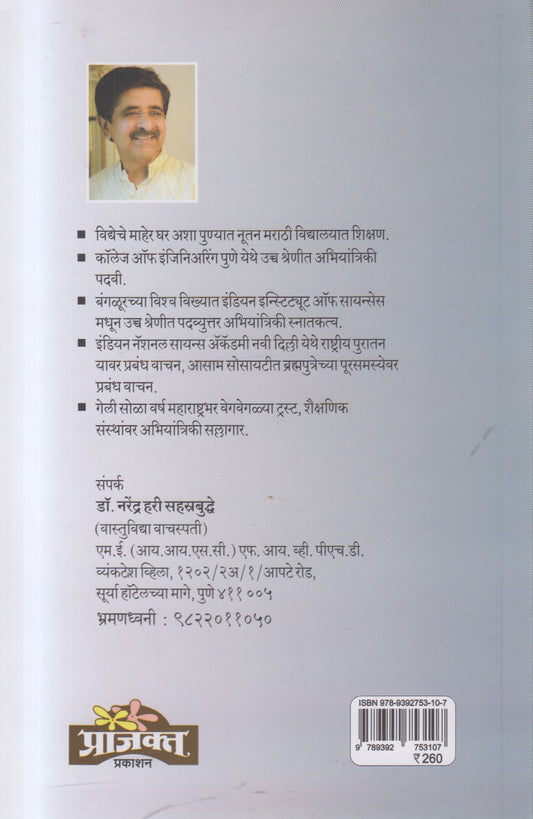 ■ विद्येचे माहेर घर अशा पुण्यात नूतन मराठी विद्यालयात शिक्षण.
■ कॉलेज ऑफ इंजिनिअरिंग पुणे येथे उच्च श्रेणीत अभियांत्रिकी
पदवी.
■ बंगळूरच्या विश्व विख्यात इंडियन इन्स्टिट्यूट ऑफ सायन्सेस
मधून उच्च श्रेणीत पदव्युत्तर अभियांत्रिकी स्नातकत्व.
■ इंडियन नॅशनल सायन्स ॲकॅडमी नवी दिल्ली येथे राष्ट्रीय पुरातन
यावर प्रबंध वाचन, आसाम सोसायटीत ब्रह्मपुत्रेच्या पूरसमस्येवर
प्रबंध वाचन.
■ गेली सोळा वर्ष महाराष्ट्रभर वेगवेगळ्या ट्रस्ट, शैक्षणिक
संस्थांवर अभियांत्रिकी सल्लागार.
संपर्क
डॉ. नरेंद्र हरी सहस्रबुद्धे
(वास्तुविद्या वाचस्पती)
एम.ई. (आय.आय.एस.सी.) एफ. आय. व्ही. पीएच.डी.
व्यंकटेश व्हिला, १२०२/२अ/१/आपटे रोड,
सूर्या हॉटेलच्या मागे, पुणे ४११ ००५
भ्रमणध्वनी : ९८२२०११०५०
प्राजक्त
प्रकाशन
ISBN 978-9392753-10-7
9 789392 753107
₹ 260